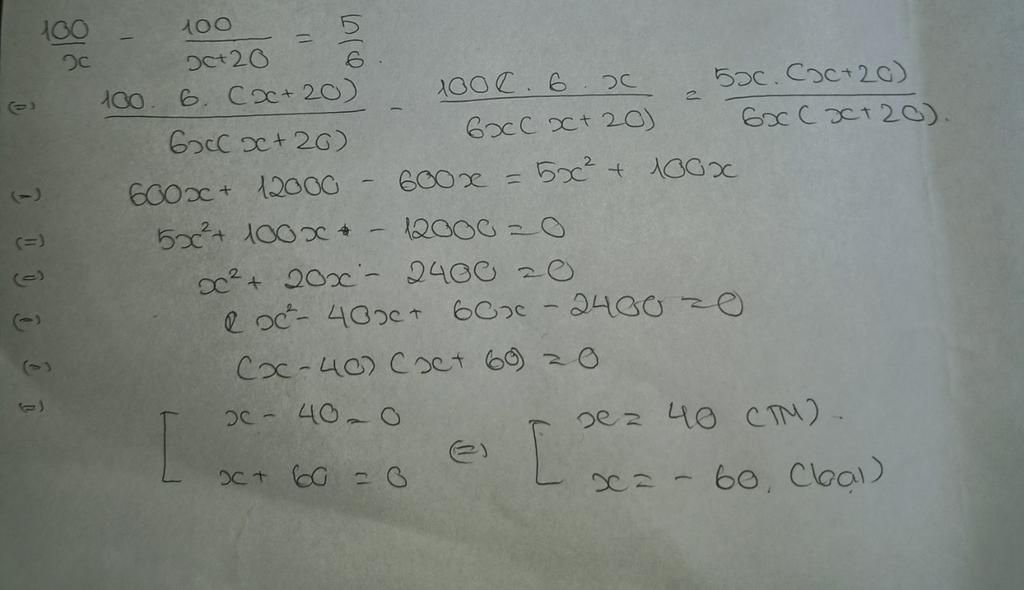 100/x - 100/x+20 = 5/6.
(=) 100. 6. (x+20)/6x(x+20) - 100. 6. x/6x(x+20) = 5x. (x+20)/6x(x+20).
(=) 600x + 12000 - 600x = 5x² + 100x
(=) 5x² + 100x - 12000 = 0
(=) x² + 20x - 2400 = 0
(=) x² - 40x + 60x - 2400 = 0
(=) (x - 40) (x + 60) = 0
(=) [ x - 40 = 0 (=) [ x = 40 (TM).
x + 60 = 0 x = - 60. (loại)